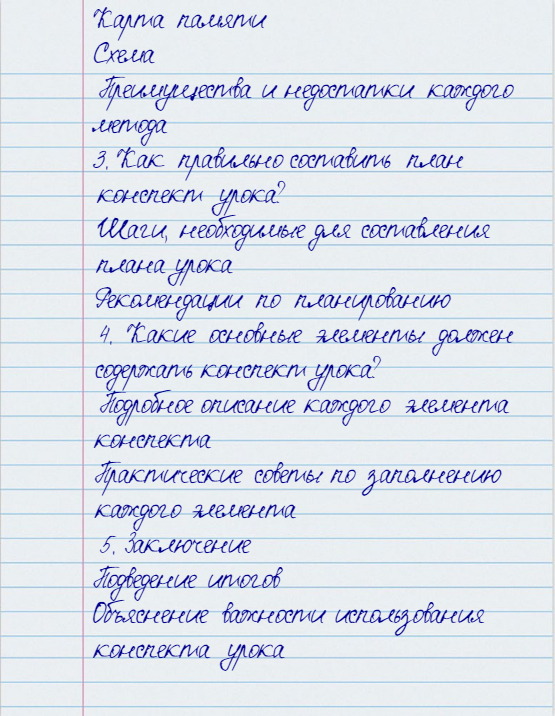 Карта памяти
Схема
Преимущества и недостатки каждого
метода
3. Как правильно составить план
конспект урока?
Шаги, необходимые для составления
плана урока
Рекомендации по планированию
4. Какие основные элементы должен
содержать конспект урока?
Подробное описание каждого элемента
конспекта
Практические советы по заполнению
каждого элемента
5. Заключение
Подведение итогов
Объяснение важности использования
конспекта урока